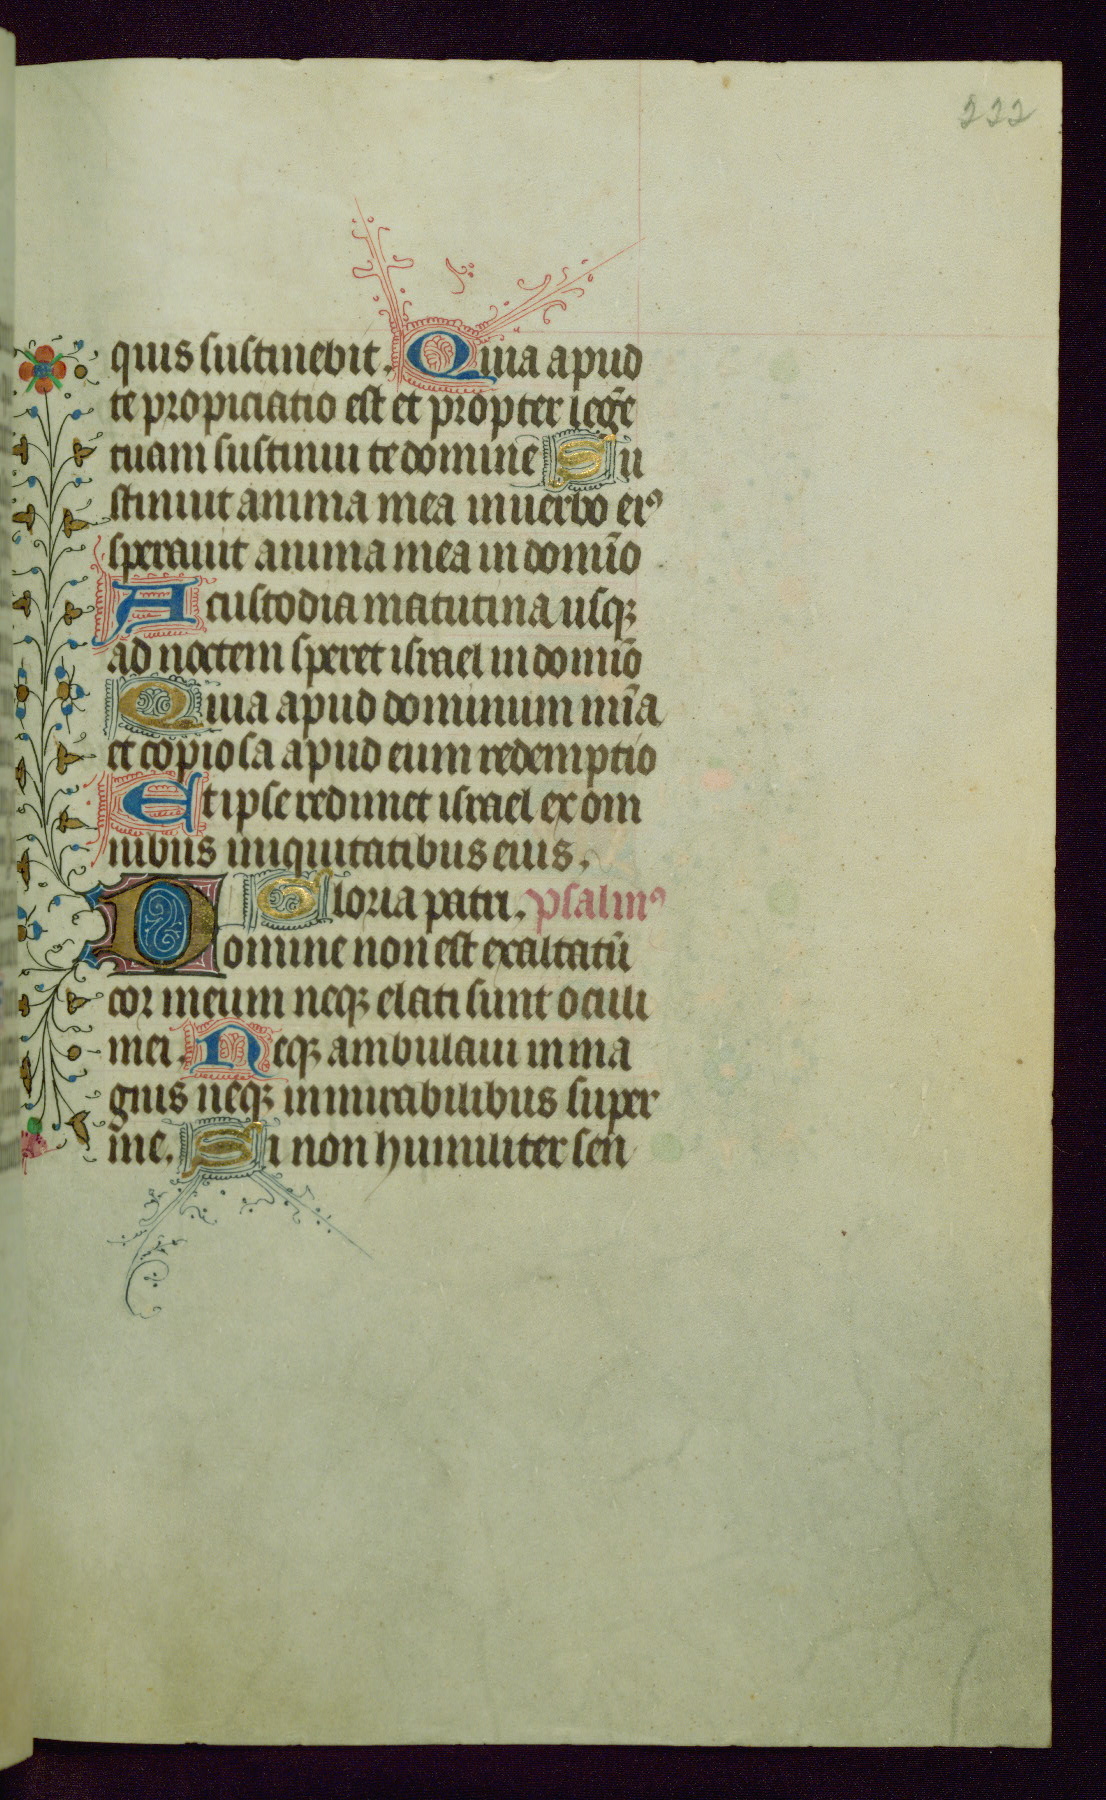 222
quis sustinebit. Quia apud
te propiciatio est et propter legē
tuam sustinui te domine Su
stinuit anima mea in uerbo eiꝰ
sperauit anima mea in domīo
A custodia matutina usqꝫ
ad noctem speret israel in domīo
Quia apud dominum mīa
et copiosa apud eum redemptio
Et ipse redimet israel ex om
nibus iniquitatibus eius.
Gloria patri. psalmꝰ
Domine non est exaltatū
cor meum neqꝫ elati sunt oculi
mei. Neqꝫ ambulaui in ma
gnis neqꝫ in mirabilibus super
me. Si non humiliter sen